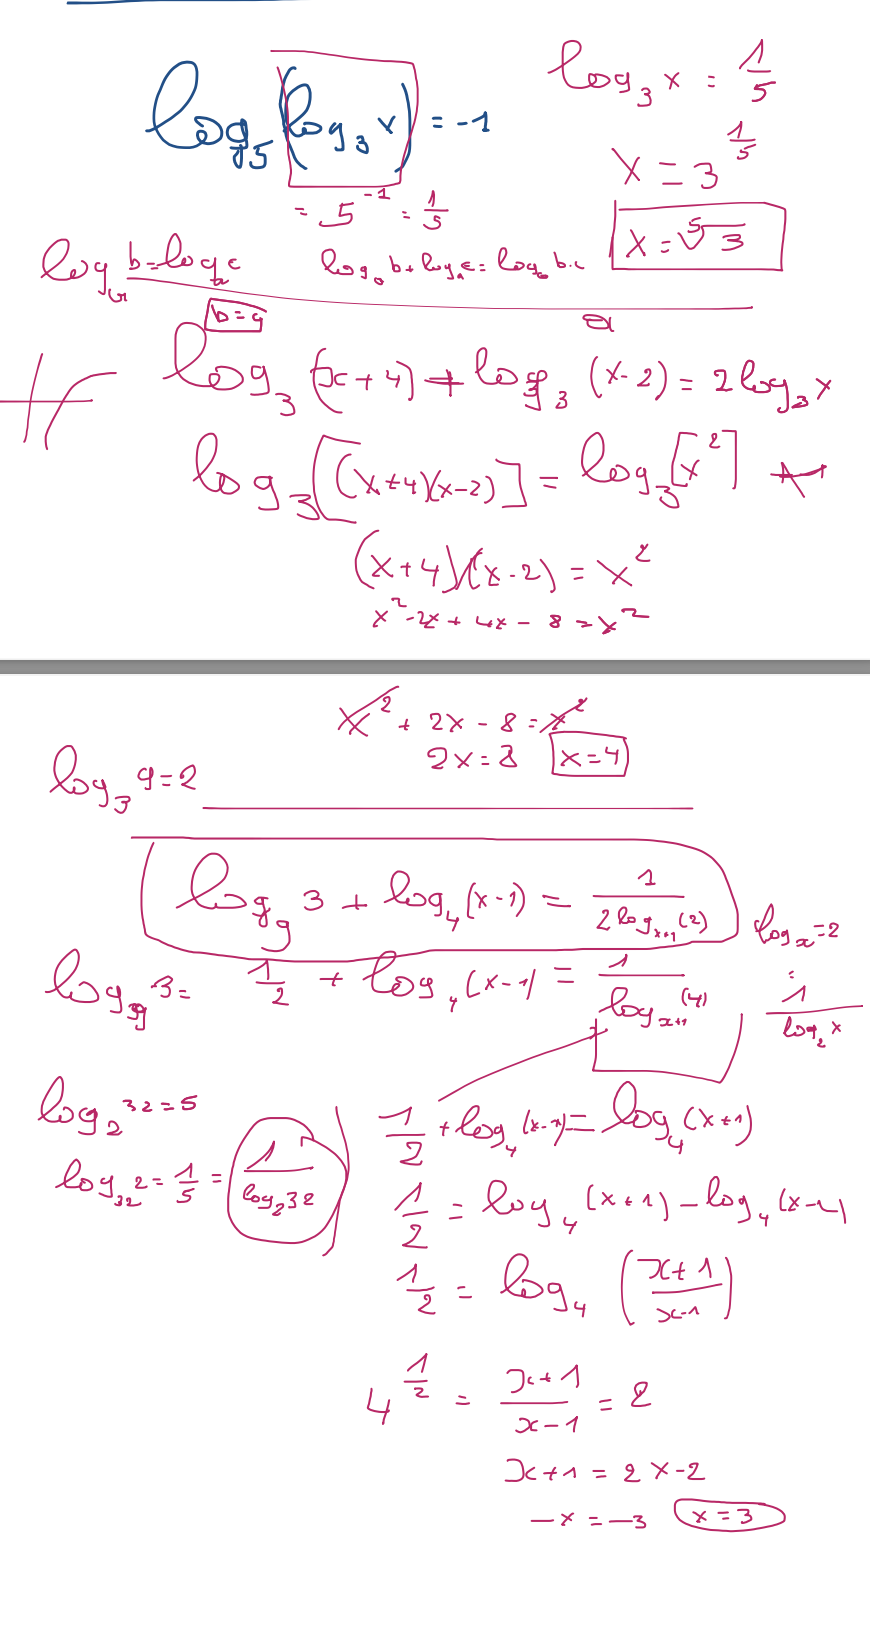 log₅(log₃ x) = -1
= 5⁻¹ = 1/5
log₃ x = 1/5
x = 3^(1/5)
x = ⁵√3
log b = log c
b = c
log b + log c = log b·c
log₃ (x + 4) + log₃ (x - 2) = 2 log₃ x
log₃ [(x+4)(x-2)] = log₃ [x²]
(x+4)(x-2) = x²
x² - 2x + 4x - 8 = x²
x² + 2x - 8 = x²
2x = 8 x = 4
log₃ 9 = 2
log₉ 3 + log₄ (x-1) = 1/(2 log_(x+1) (2))
log₉ 3 = 1/2 + log₄ (x-1) = 1/(log_(x+1) (4))
log_x = 2
1/(log₂ x)
log₂ 32 = 5
log₃₂ 2 = 1/5 = 1/(log₂ 32)
1/2 + log₄ (x-1) = log₄ (x+1)
1/2 = log₄ (x+1) - log₄ (x-1)
1/2 = log₄ ((x+1)/(x-1))
4^(1/2) = (x+1)/(x-1) = 2
x+1 = 2x-2
-x = -3 x = 3